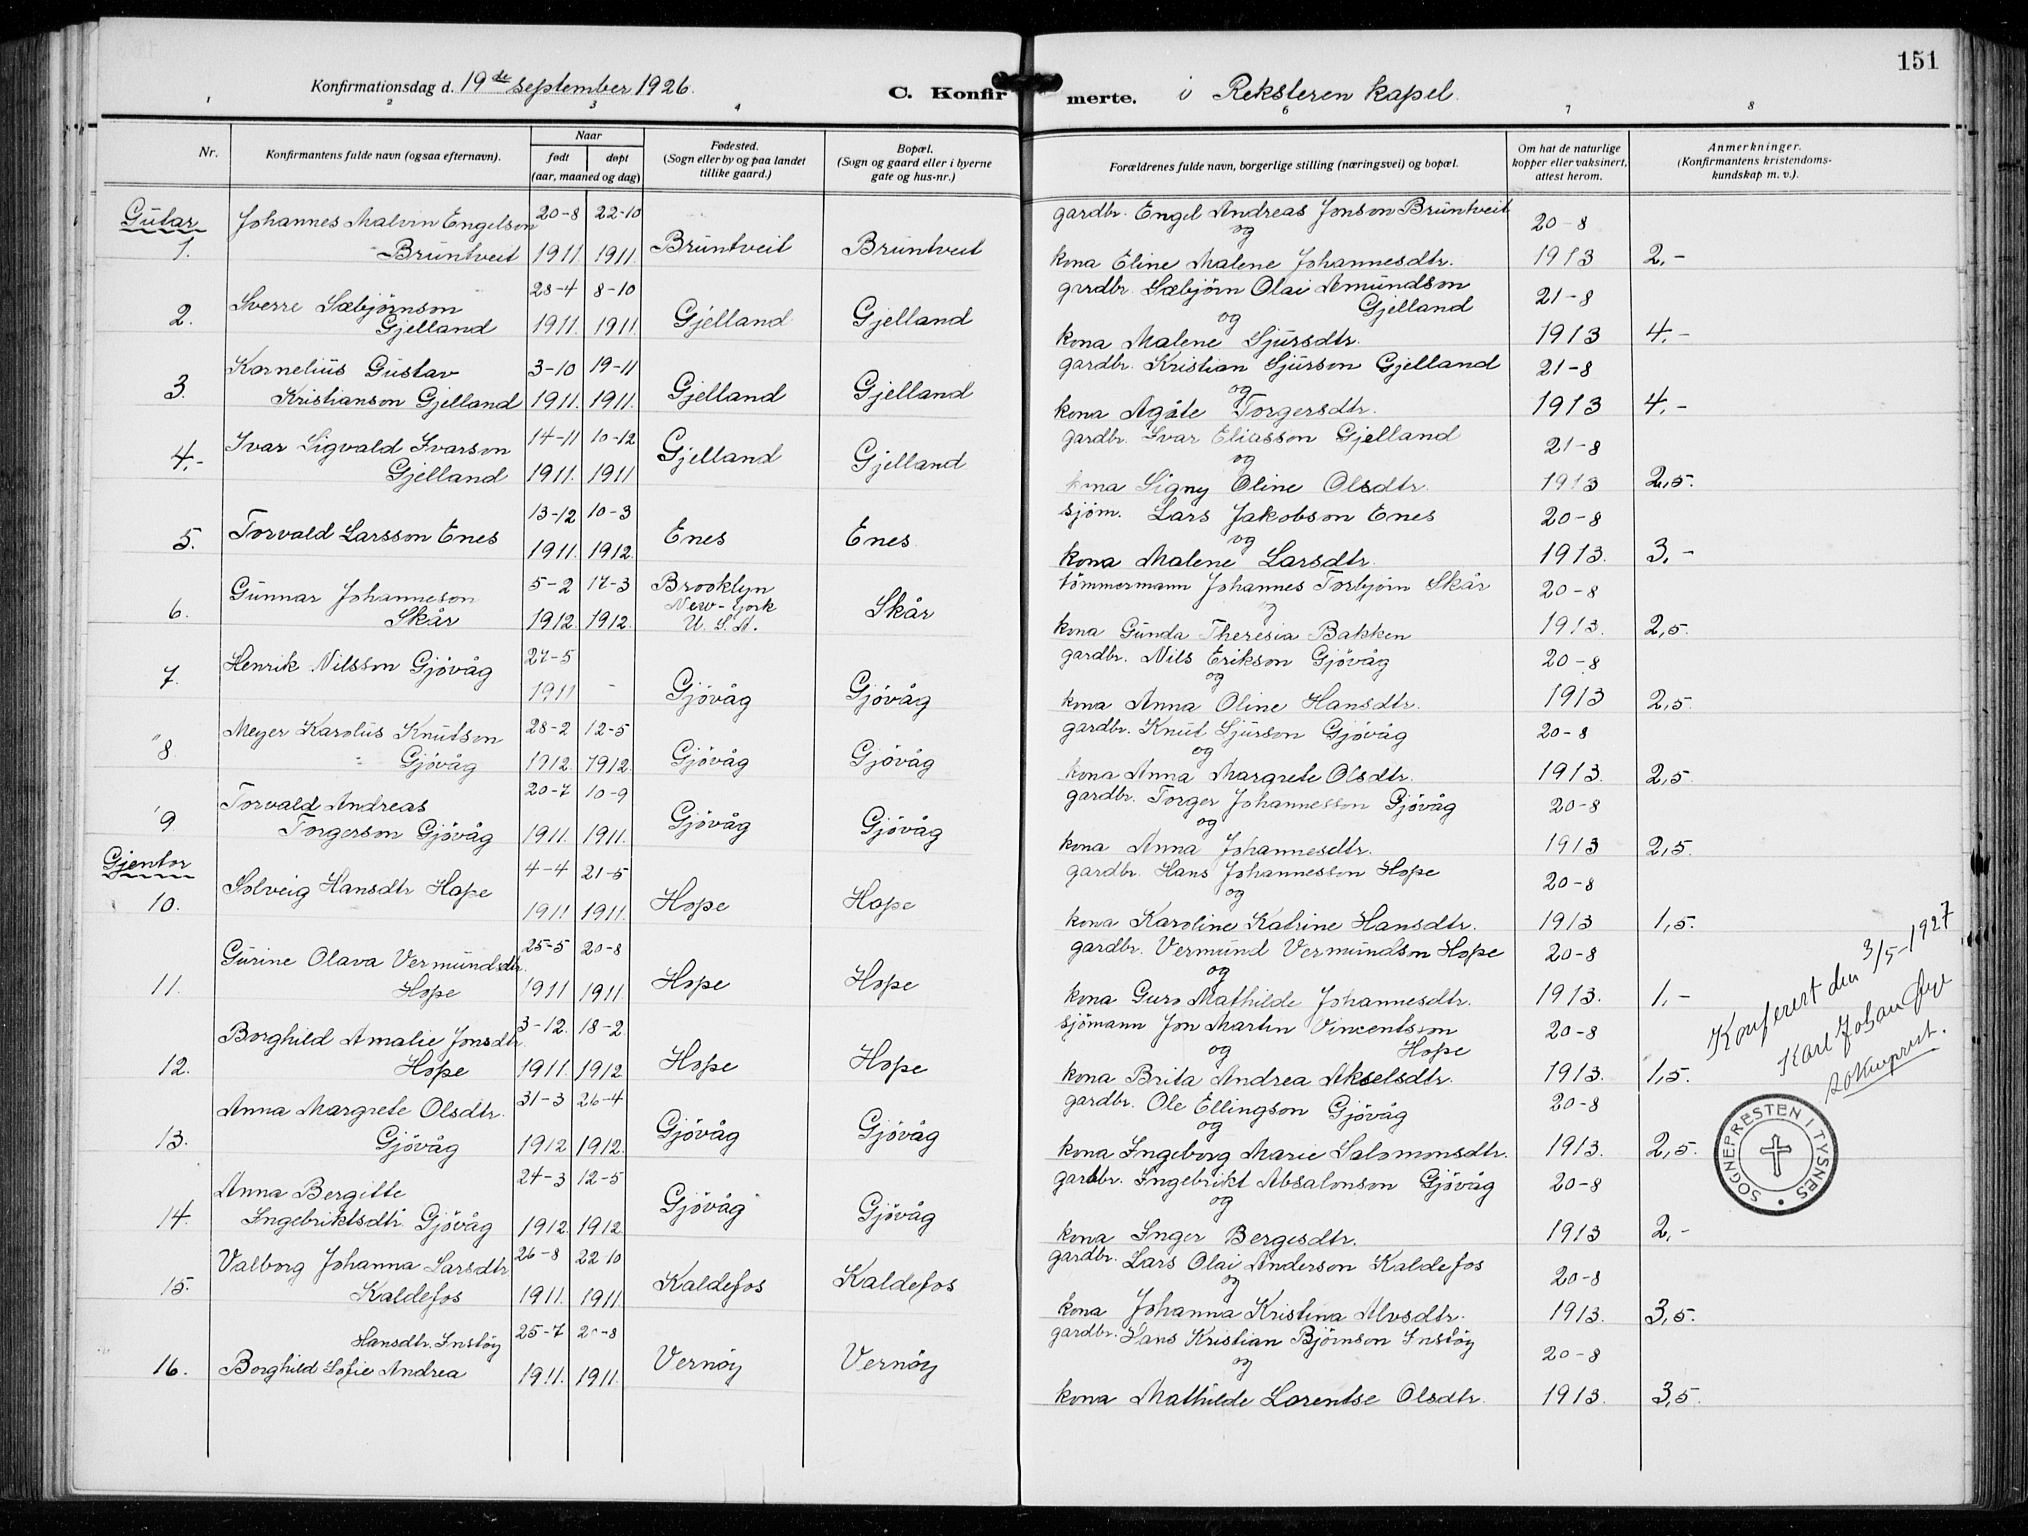 151
Konfirmationsdag d. 19de september 1926.
C. Konfirmerte. i Reksteren kapel.
1 2 3 4 6 7 8
Nr.
Konfirmantens fulde navn (ogsaa efternavn).
Naar
født døpt
(aar, maaned og dag)
Fødested.
(Sogn eller by og paa landet
tillike gaard.)
Bopæl.
(Sogn og gaard eller i byerne
gate og hus-nr.)
Forældrenes fulde navn, borgerlige stilling (næringsvei) og bopæl.
Om hat de naturlige
kopper eller vaksinert,
attest herom.
Anmerkninger.
(Konfirmantens kristendoms-
kundskap m. v.).
Gutar
Johannes Malvin Engelson 20-8 22-10 gardbr. Engel Andreas Jonson Bruntveit 20-8
og
1. Bruntveit 1911. 1911. Bruntveit Bruntveit kona Eline Malene Johannesdtr. 1913 2,-
Sverre Sæbjørnson 28-4 8-10 gardbr. Sæbjörn Olai Amundson 21-8
Gjelland
og
2. Gjelland 1911. 1911. Gjelland Gjelland kona Malene Sjursdtr. 1913 4,-
Kornelius Gustav 3-10 19-11 gardbr. Kristian Sjurson Gjelland 21-8
og
3. Kristianson Gjelland 1911. 1911. Gjelland Gjelland kona Agåte Torgersdtr. 1913 4,-
Ivar Sigvald Ivarson 14-11 10-12 gardbr. Ivar Eliasson Gjelland 21-8
og
4,- Gjelland 1911. 1911 Gjelland Gjelland kona Signy Eline Olsdtr. 1913 2,5.
13-12 10-3 sjøm. Lars Jakobson Enes 20-8
og
5. Torvald Larsson Enes 1911. 1912. Enes Enes kona Malene Larsdtr. 1913. 3,-
Gunnar Johanneson 5-2 17-3 Brooklyn tömmermann Johannes Torbjörn Skår 20-8
New-York
og
6. Skår 1912. 1912. U. S. A. Skår kona Gunda Theresia Bakken 1913. 2,5.
Henrik Nilsson Gjövåg 27-5 gardbr. Nils Erikson Gjövåg 20-8
og
7. 1911 - Gjövåg Gjövåg kona Anna Oline Hansdtr. 1913 2,5.
Meyer Karolus Knutson 28-2 12-5 gardbr. Knut Sjurson Gjövåg 20-8
og
8. Gjövåg 1912. 1912. Gjövåg Gjövåg kona Anna Margrete Olsdtr. 1913. 2,5.
Torvald Andreas 20-7 10-9 gardbr. Torger Johannesson Gjövåg 20-8
og
9 Torgerson Gjövåg 1911. 1911. Gjövåg Gjövåg kona Anna Johannesdtr. 1913 2,5.
Gjentor
Solveig Hansdtr Hope 4-4 21-5 gardbr. Hans Johannesson Hope 20-8
og
10. 1911 1911. Hope Hope kona Karoline Katrine Hansdtr. 1913 1,5.
Gurine Olava Vermundsdtr. 25-5 20-8 gardbr. Vermund Vermundson Hope 20-8
og
11. Hope 1911 1911 Hope Hope kona Guro Mathilde Johannesdtr. 1913. 1,-
Borghild Amalie Jonsdtr. 3-12. 18-2 sjömann Jon Martin Vincentsson 20-8
og Hope
12. Hope 1911. 1912 Hope Hope kona Brita Andrea Akselsdtr. 1913. 1,5.
Anna Margrete Olsdtr. 31-3 26-4 gardbr. Ole Ellingson Gjövåg 20-8
og
13. Gjövåg 1912 1912. Gjövåg Gjövåg kona Ingeborg Marie Salomonsdtr. 1913. 2,5.
Anna Bergitte 24-3 12-5 gardbr. Ingebrikt Absalonson Gjövåg 20-8
og
14. Ingebriktsdtr. Gjövåg 1912 1912. Gjövåg Gjövåg kona Inger Bergesdtr. 1913 2,-
Valborg Johanna Larsdtr 26-8 22 10 gardbr. Lars Olai Anderson Kaldefos 20-8
og
15. Kaldefos 1911. 1911. Kaldefos Kaldefos kona Johanna Kristina Alvsdtr. 1913. 3,5.
Hansdtr. Instöy 25-7 gardbr. Hans Kristian Björnson Instöy 20-8
og
16. Borghild Sofie Andrea 1911. 1911. Vernöy Vernöy kona Mathilde Lorentse Olsdtr. 1913. 3,5.
Konferert den 3/5-1927
Karl Johan
sokneprest.
SOGNEPRESTEN I TYSNES